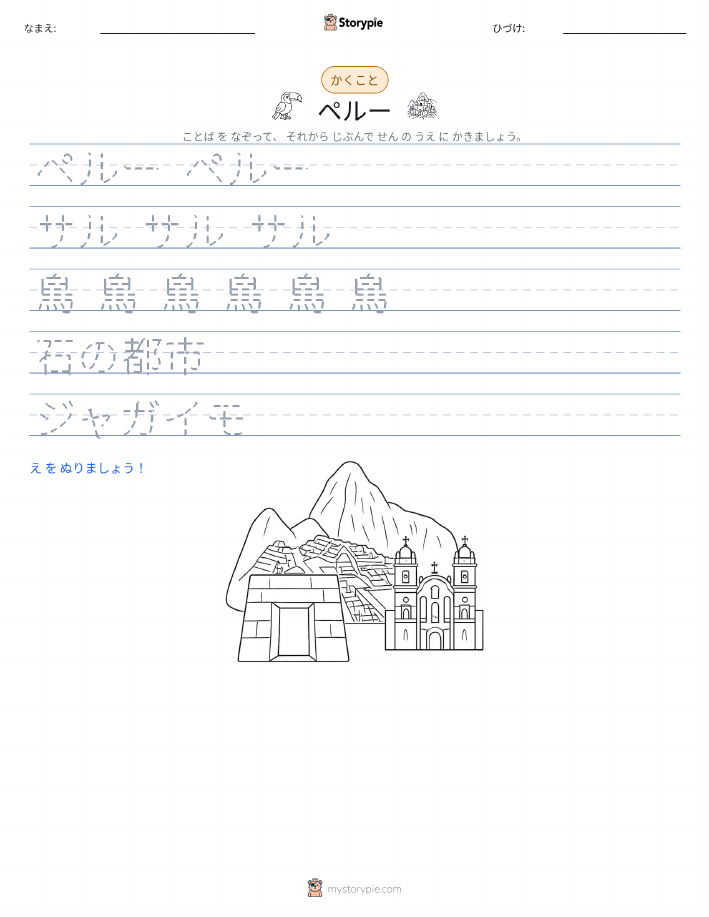 なまえ:
Storypie
ひづけ:
かくこと
ペルー
ことば を なぞって、 それから じぶんで せん の うえ に かきましょう。
ペルー ペルー
サル サル サル
鳥 鳥 鳥 鳥 鳥 鳥
石の都市
ジャガイモ
え を ぬりましょう！
mystorypie.com